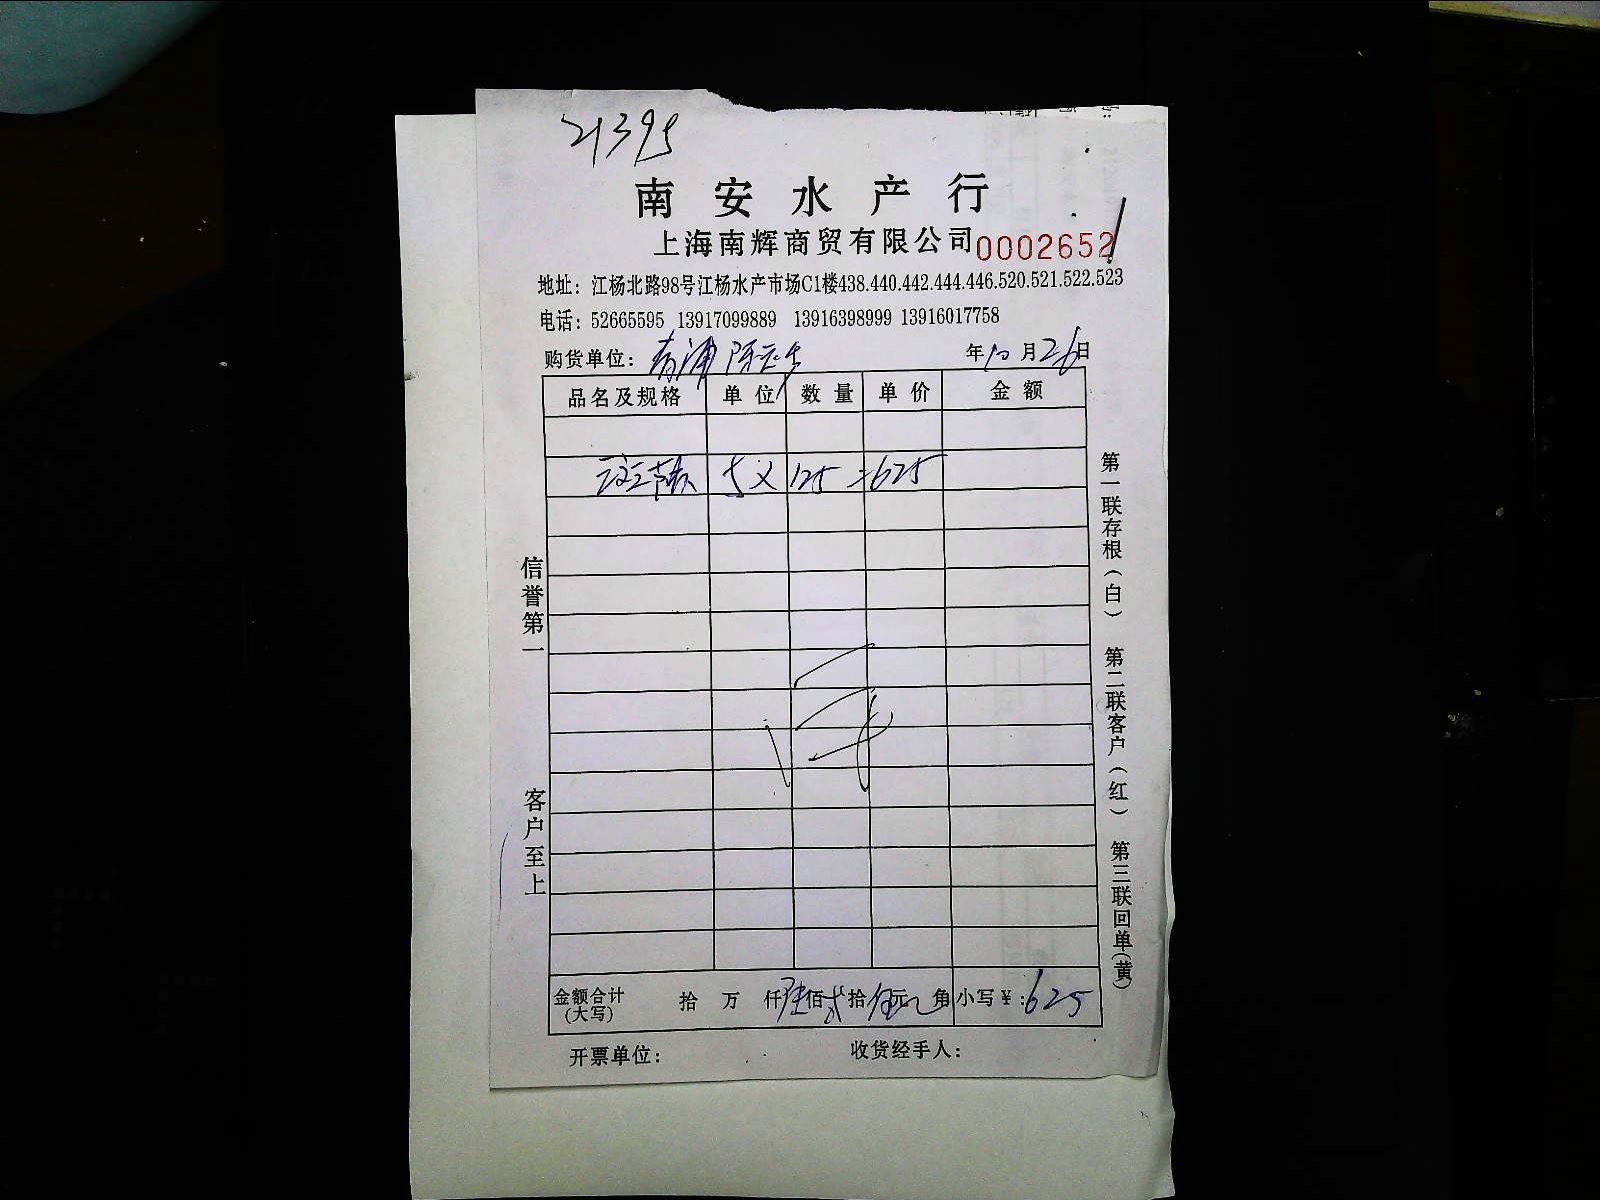 21395
南安水产行
上海南辉商贸有限公司 0002652
地址：江杨北路98号江杨水产市场C1楼438.440.442.444.446.520.521.522.523
电话：52665595 13917099889 13916398999 13916017758
购货单位：青浦 年10月26日
品名及规格 单位 数量 单价 金额
斑节 5 × 125 = 625
信誉第一
客户至上
第一联存根（白） 第二联客户（红） 第三联回单（黄）
金额合计（大写） 拾 万 仟 陆佰 贰拾 伍元 角 小写￥：625
开票单位： 收货经手人：